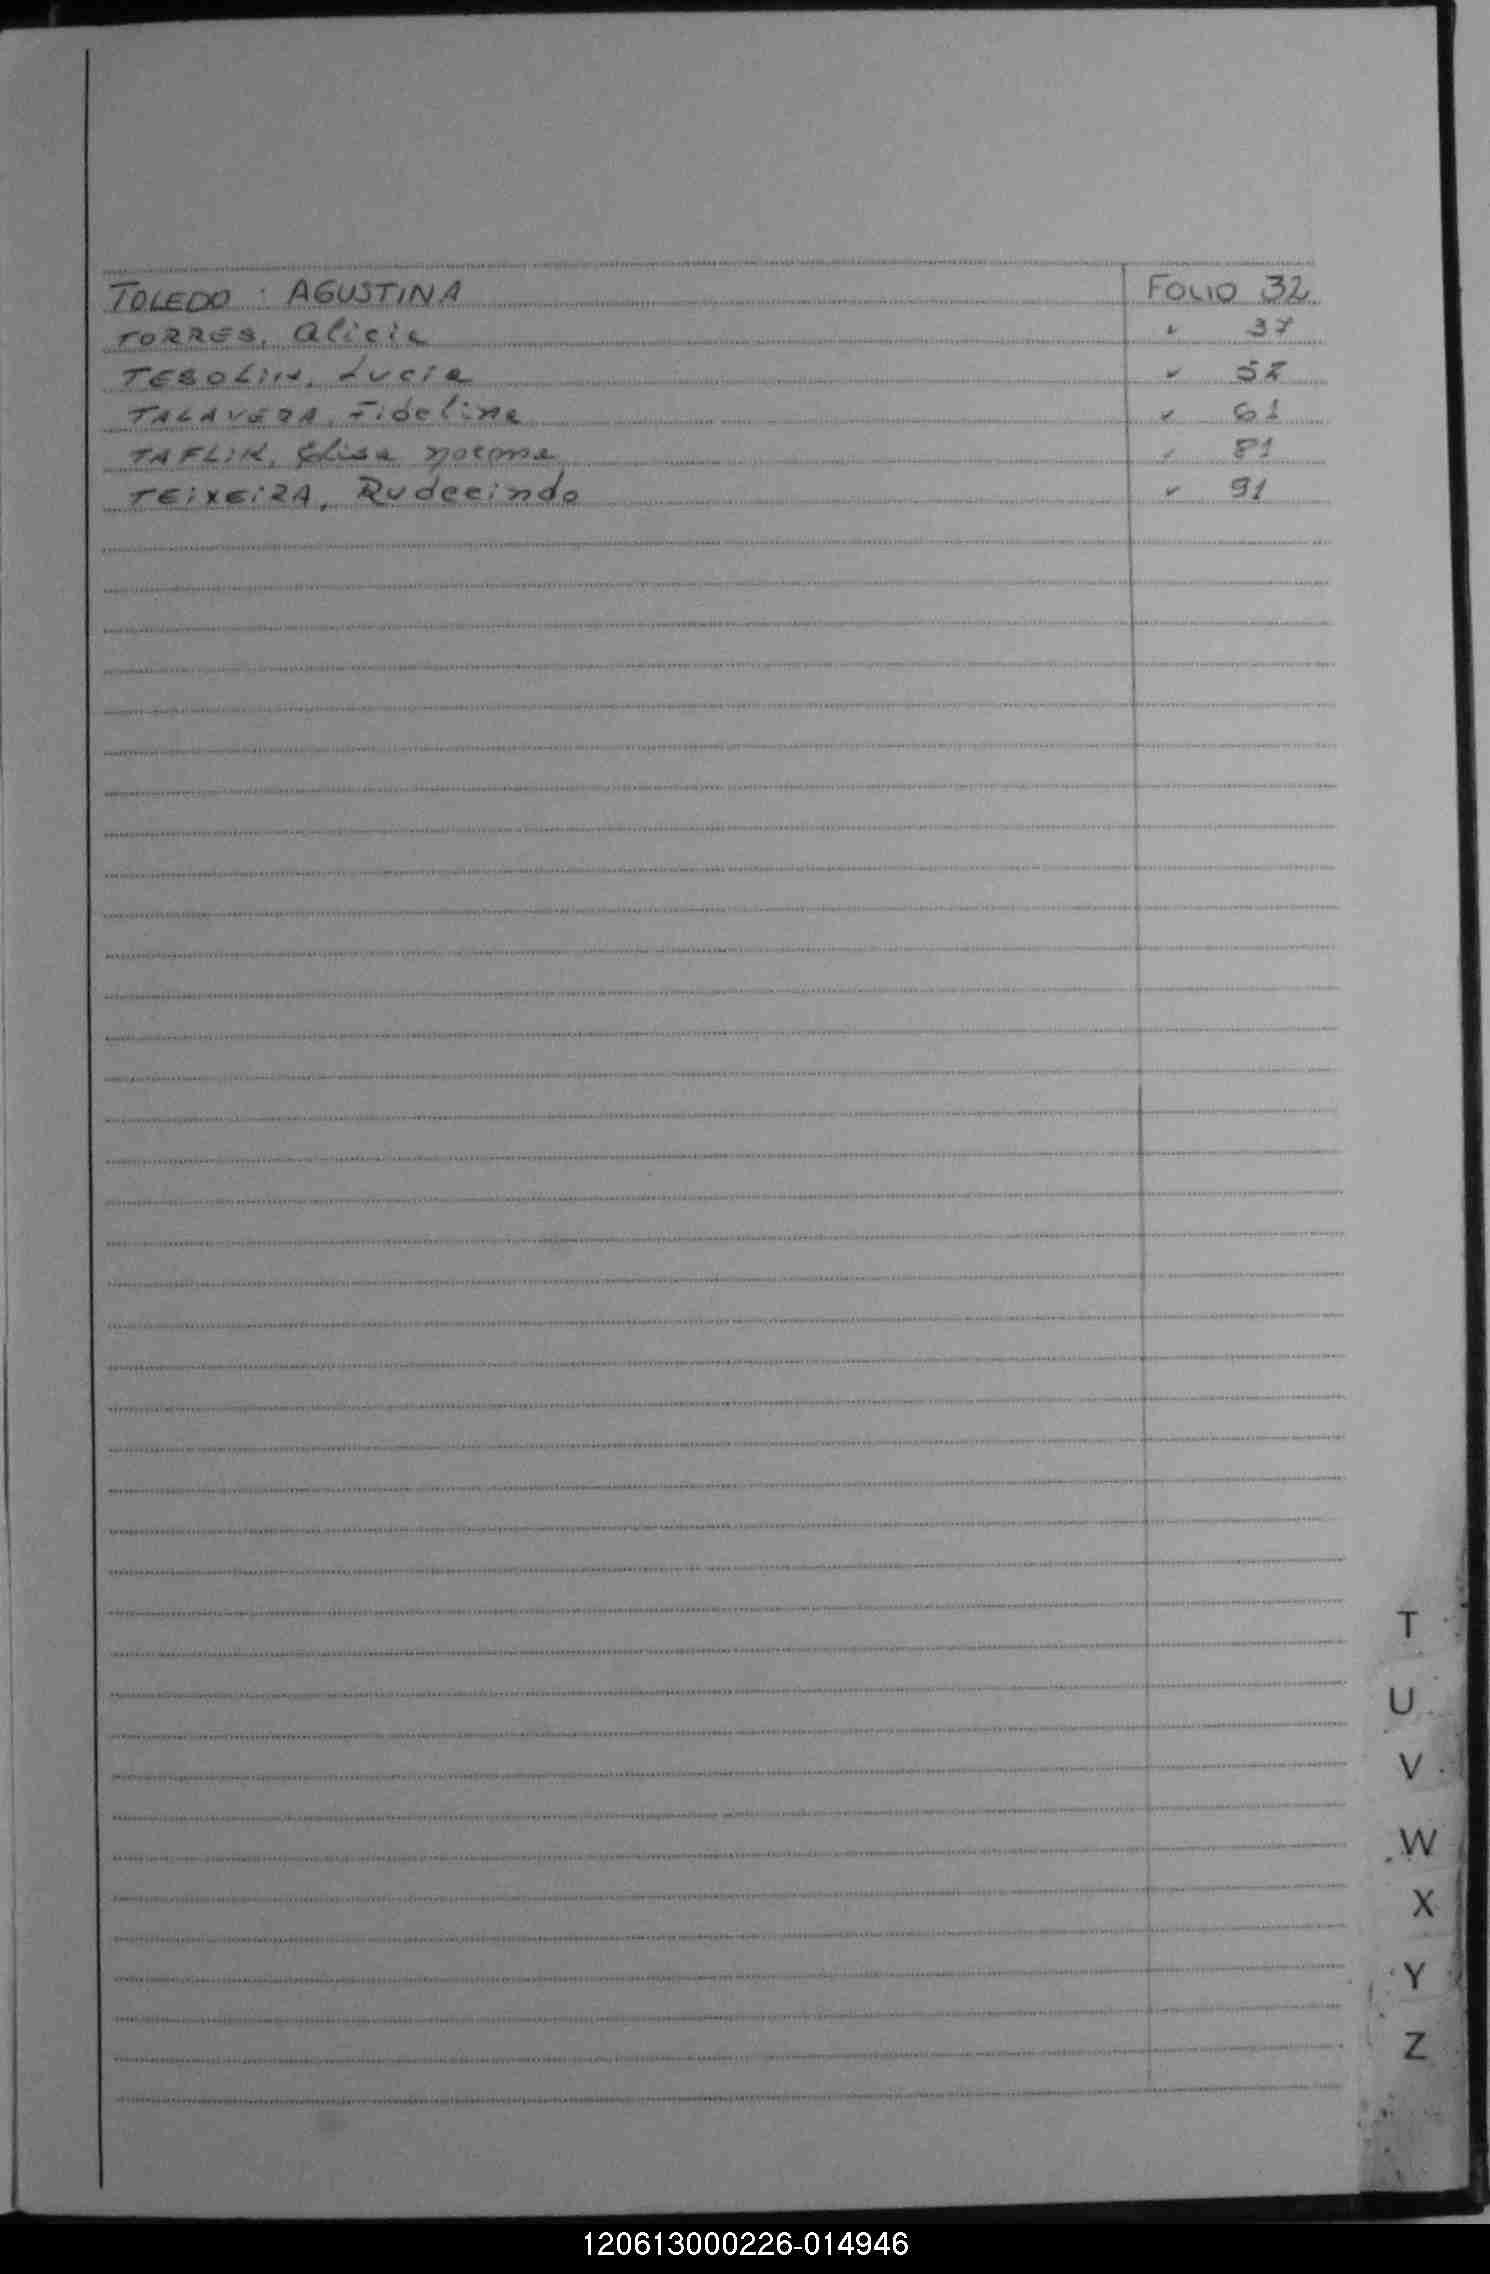 TOLEDO : AGUSTINA FOLIO 32
TORRES, Alicia " 37
TESOLIN, Lucia " 52
TALAVERA, Fidelina " 61
TAFLIK, Elisa Norma " 81
TEIXEIRA, Rudecindo " 91
T
U
V
W
X
Y
Z
120613000226-014946